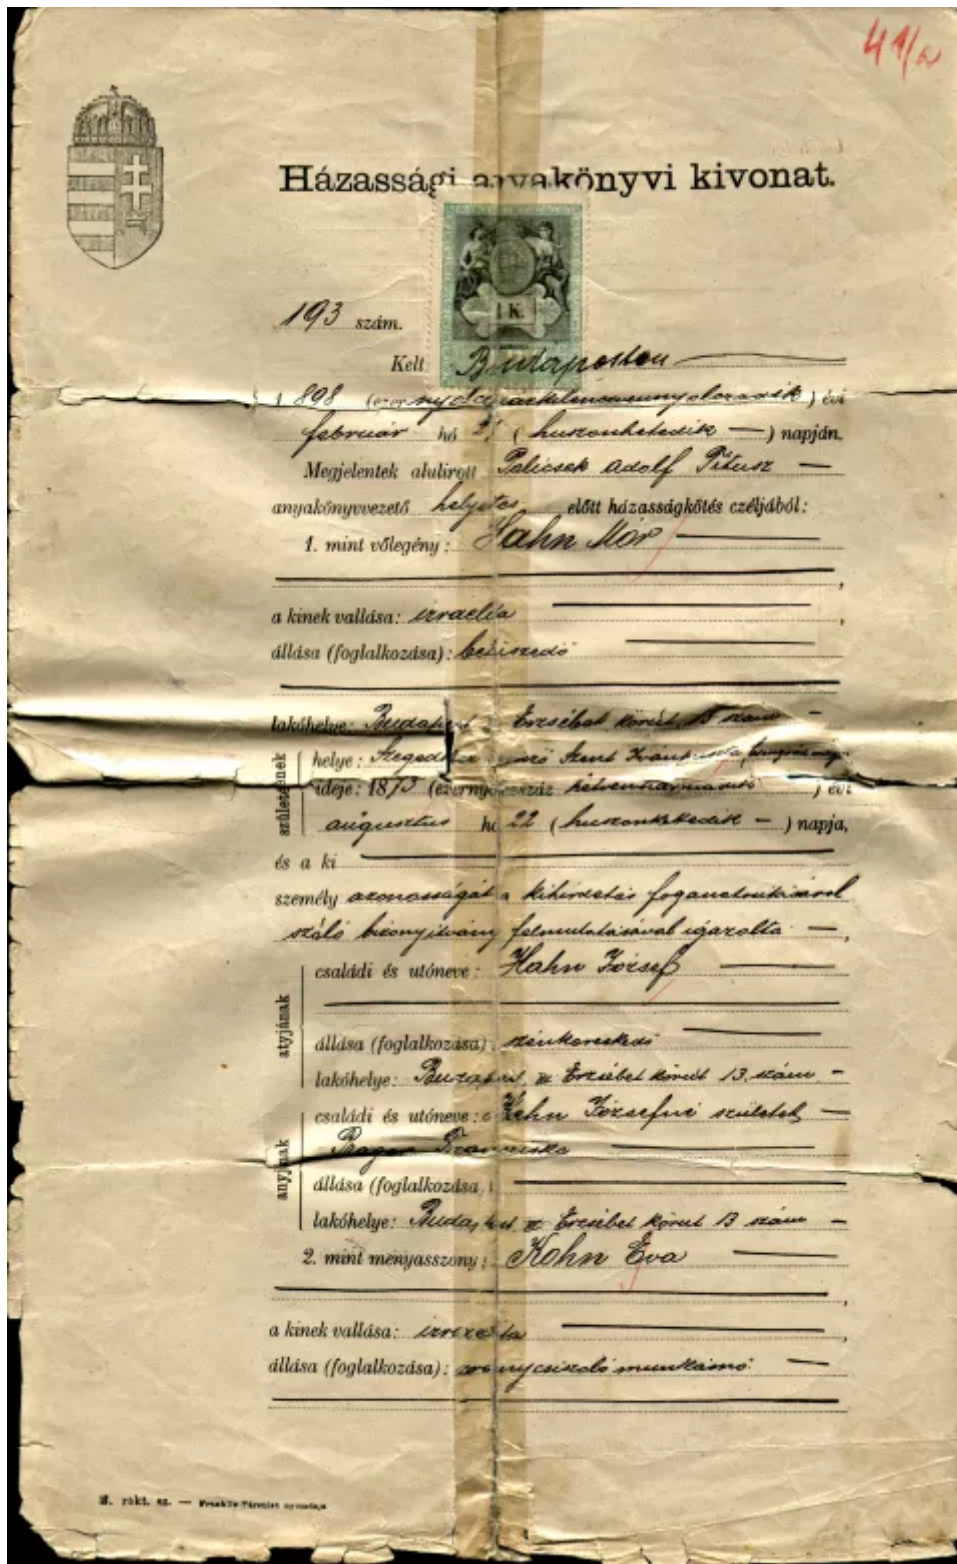 4 1/2
Házassági anyakönyvi kivonat.
1 K.
193 szám.
Kelt Budapesten
1898 (ezernyolczszázkilenczvennyolczadik) évi
február hó 27 (huszonhetedik) napján.
Megjelentek alulirott Pelicsek Adolf Titusz
anyakönyvvezető helyettes előtt házasságkötés czéljából:
1. mint vőlegény: Hahn Mór
a kinek vallása: izraelita
állása (foglalkozása):
lakóhelye: Budapest Erzsébet körút 13 szám
születésének
helye: Szent Iván
ideje: 1873 (ezernyolczszáz hetvenharmadik) évi
augusztus hó 22 (huszonkettedik) napja,
és a ki
személy azonosságát a kihirdetés foganatosításáról
szóló bizonyitvány felmutatásával igazolta
atyjának
családi és utóneve: Hahn József
állása (foglalkozása): szénkereskedő
lakóhelye: Budapest Erzsébet körút 13. szám
anyjának
családi és utóneve: Hahn Józsefné született
Prager Franciska
állása (foglalkozása):
lakóhelye: Budapest Erzsébet körut 13 szám
2. mint menyasszony: Kohn Éva
a kinek vallása: izraelita
állása (foglalkozása): munkásnő
r. szt. sz. — Franklin-Társulat nyomdája